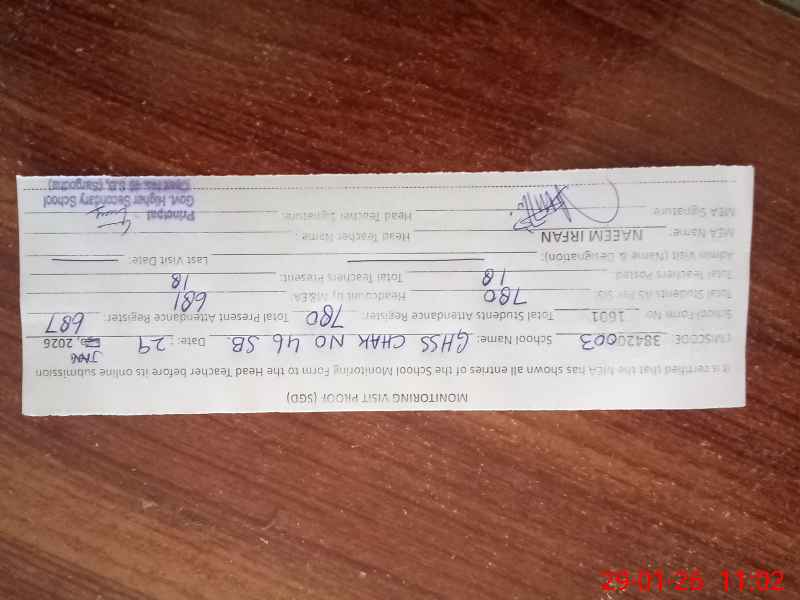 MONITORING VISIT PROOF (SGD)
It is certified that the MEA has shown all entries of the School Monitoring Form to the Head Teacher before its online submission
EMISCODE: 38420003 School Name: GHSS CHAK NO 46 SB. Date: 29 JAN 2026
School Form No. 1601 Total Students Attendance Register: 780 Total Present Attendance Register: 687
Total Students As Per SIS: 780 Headcount by M&EA 681
Total Teachers Posted: 18 Total Teachers Present: 18
Admin Visit (Name & Designation): Last Visit Date:
MEA Name: NAEEM IRFAN Head Teacher Name:
MEA Signature: Head Teacher Signature:
Principal
Govt. Higher Secondary School
S.B. (Sargodha)
29-01-26 11:02